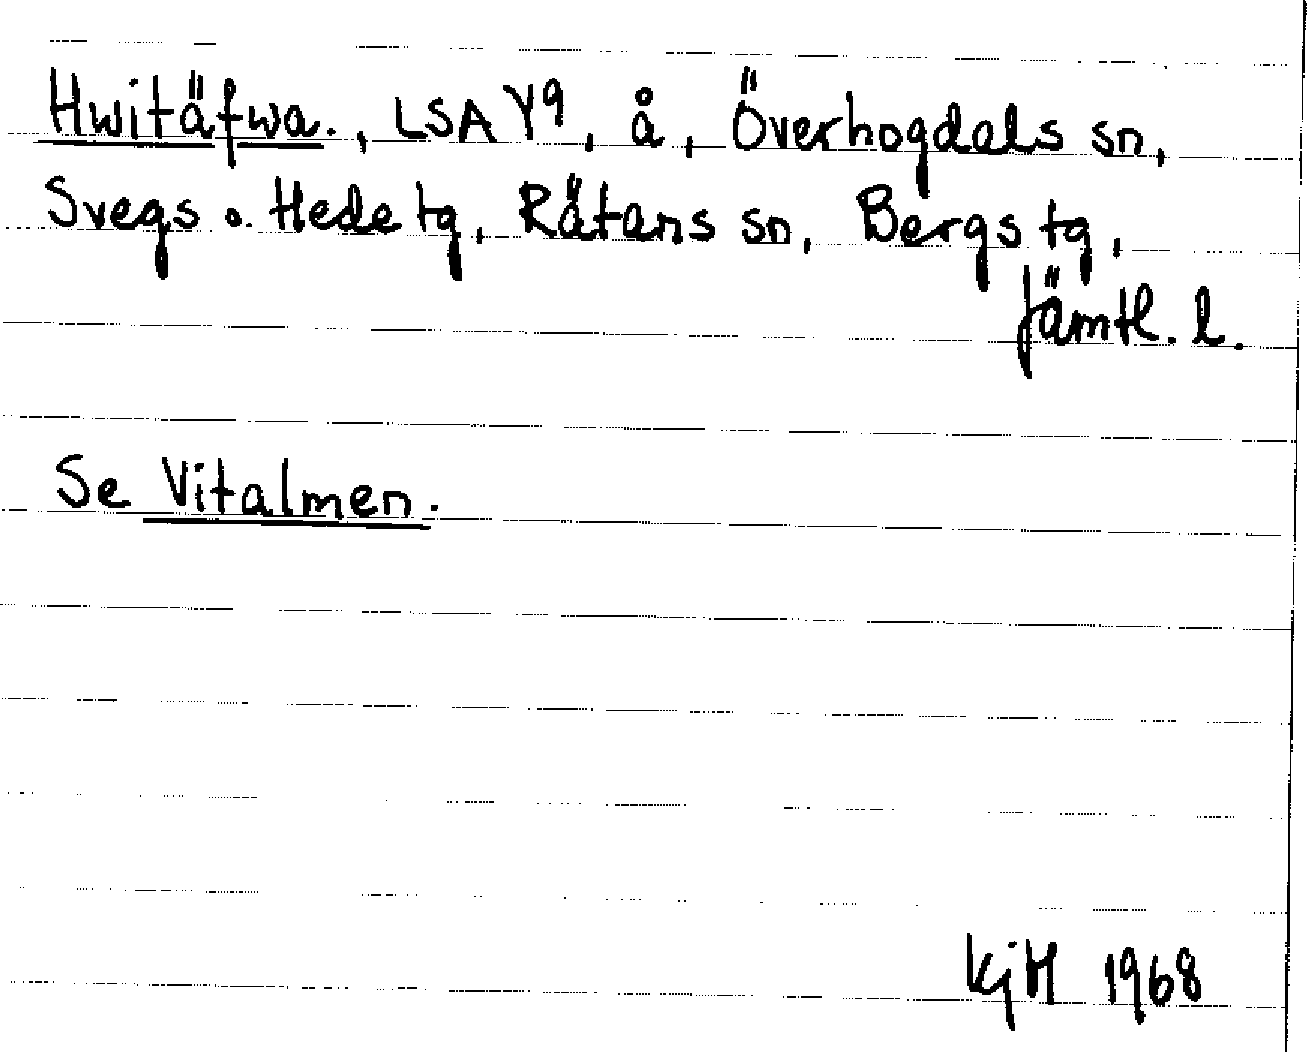 Hwitäfwa., LSA Y9, å, Överhogdals sn,
Svegs o. Hede tg, Rätans sn, Bergs tg,
Jämtl. l.
Se Vitalmen.
KjH 1968